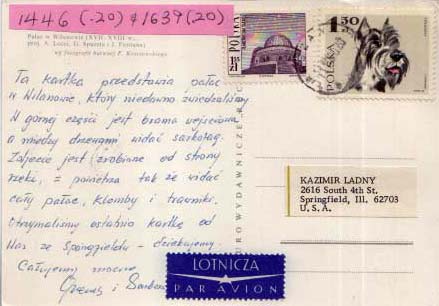 1446 (.20) & 1639 (.20)
Pałac w Wilanowie (XVII-XVIII w.,
proj. A. Locci, G. Spazzio i J. Fontana)
wg fotografii barwnej
Ta kartka przedstawia pałac
w Wilanowie, który niedawno zwiedzaliśmy
W górnej części jest brama wejściowa
a między drzewami widać sarkofag.
Zdjęcie jest zrobione od strony
rzeki, z powietrza tak że widać
cały pałac, klomby i trawniki.
Otrzymaliśmy ostatnio kartkę od
Was ze Springfieldu - dziękujemy.
Całujemy mocno
i
POLSKA
1.50
POLSKA
BIURO WYDAWNICZE
KAZIMIR LADNY
2616 South 4th St.
Springfield, Ill. 62703
U. S. A.
LOTNICZA
PAR AVION